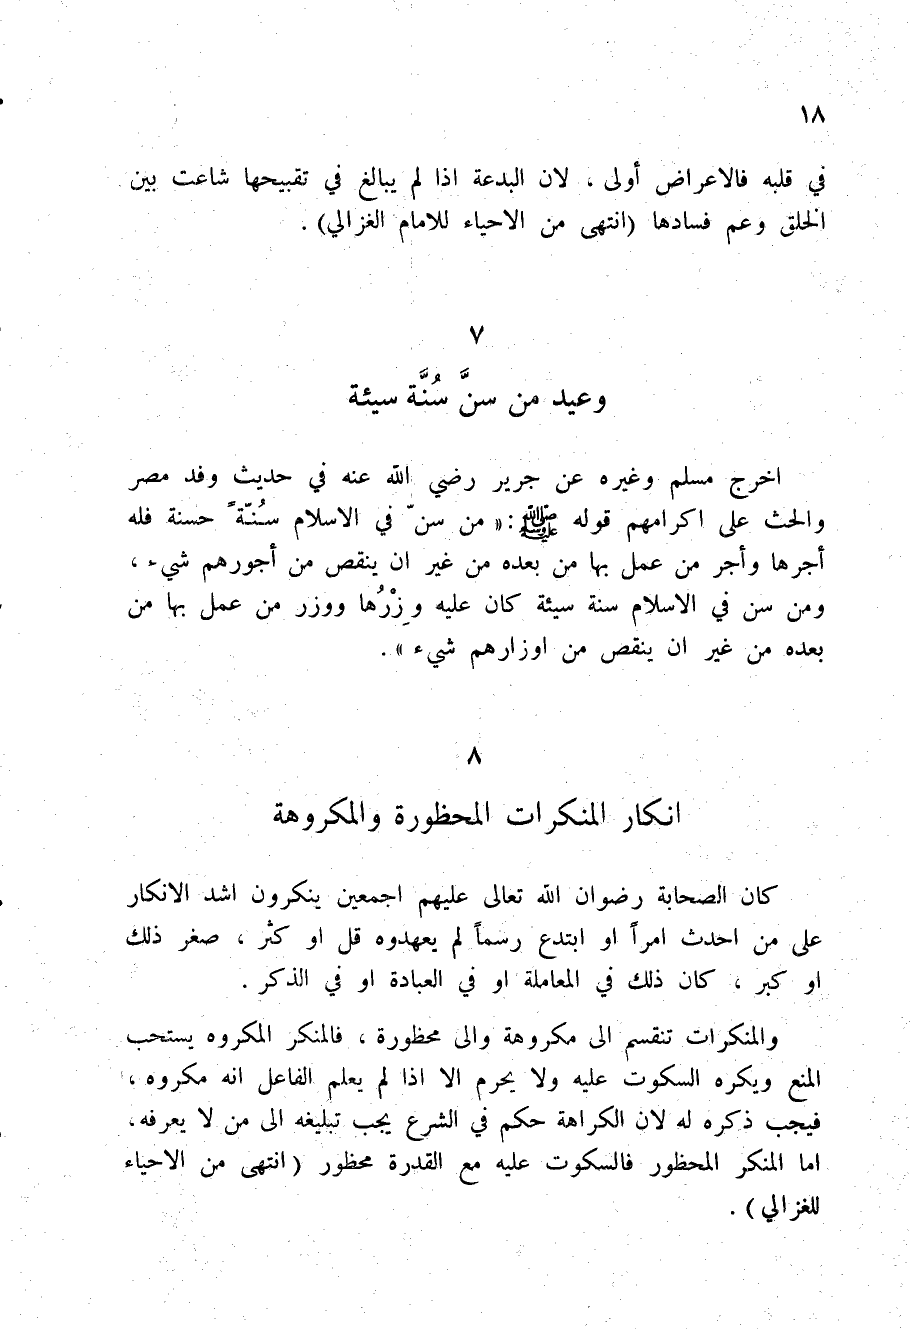 ١٨
في قلبه فالاعراض أولى ، لان البدعة اذا لم يبالغ في تقبيحها شاعت بين
الخلق وعم فسادها (انتهى من الاحياء للامام الغزالي) .
٧
وعيد من سنَّ سُنَّة سيئة
اخرج مسلم وغيره عن جرير رضي الله عنه في حديث وفد مصر
والحث على اكرامهم قوله ﷺ :« من سنّ في الاسلام سُنّةً حسنة فله
أجرها وأجر من عمل بها من بعده من غير ان ينقص من أجورهم شيء ،
ومن سن في الاسلام سنة سيئة كان عليه وِزْرُها ووزر من عمل بها من
بعده من غير ان ينقص من اوزارهم شيء » .
٨
انكار المنكرات المحظورة والمكروهة
كان الصحابة رضوان الله تعالى عليهم اجمعين ينكرون اشد الانكار
على من احدث امراً او ابتدع رسماً لم يعهدوه قل او كثر ، صغر ذلك
او كبر ، كان ذلك في المعاملة او في العبادة او في الذكر .
والمنكرات تنقسم الى مكروهة والى محظورة ، فالمنكر المكروه يستحب
المنع ويكره السكوت عليه ولا يحرم الا اذا لم يعلم الفاعل انه مكروه ،
فيجب ذكره له لان الكراهة حكم في الشرع يجب تبليغه الى من لا يعرفه،
اما المنكر المحظور فالسكوت عليه مع القدرة محظور ( انتهى من الاحياء
للغزالي ) .